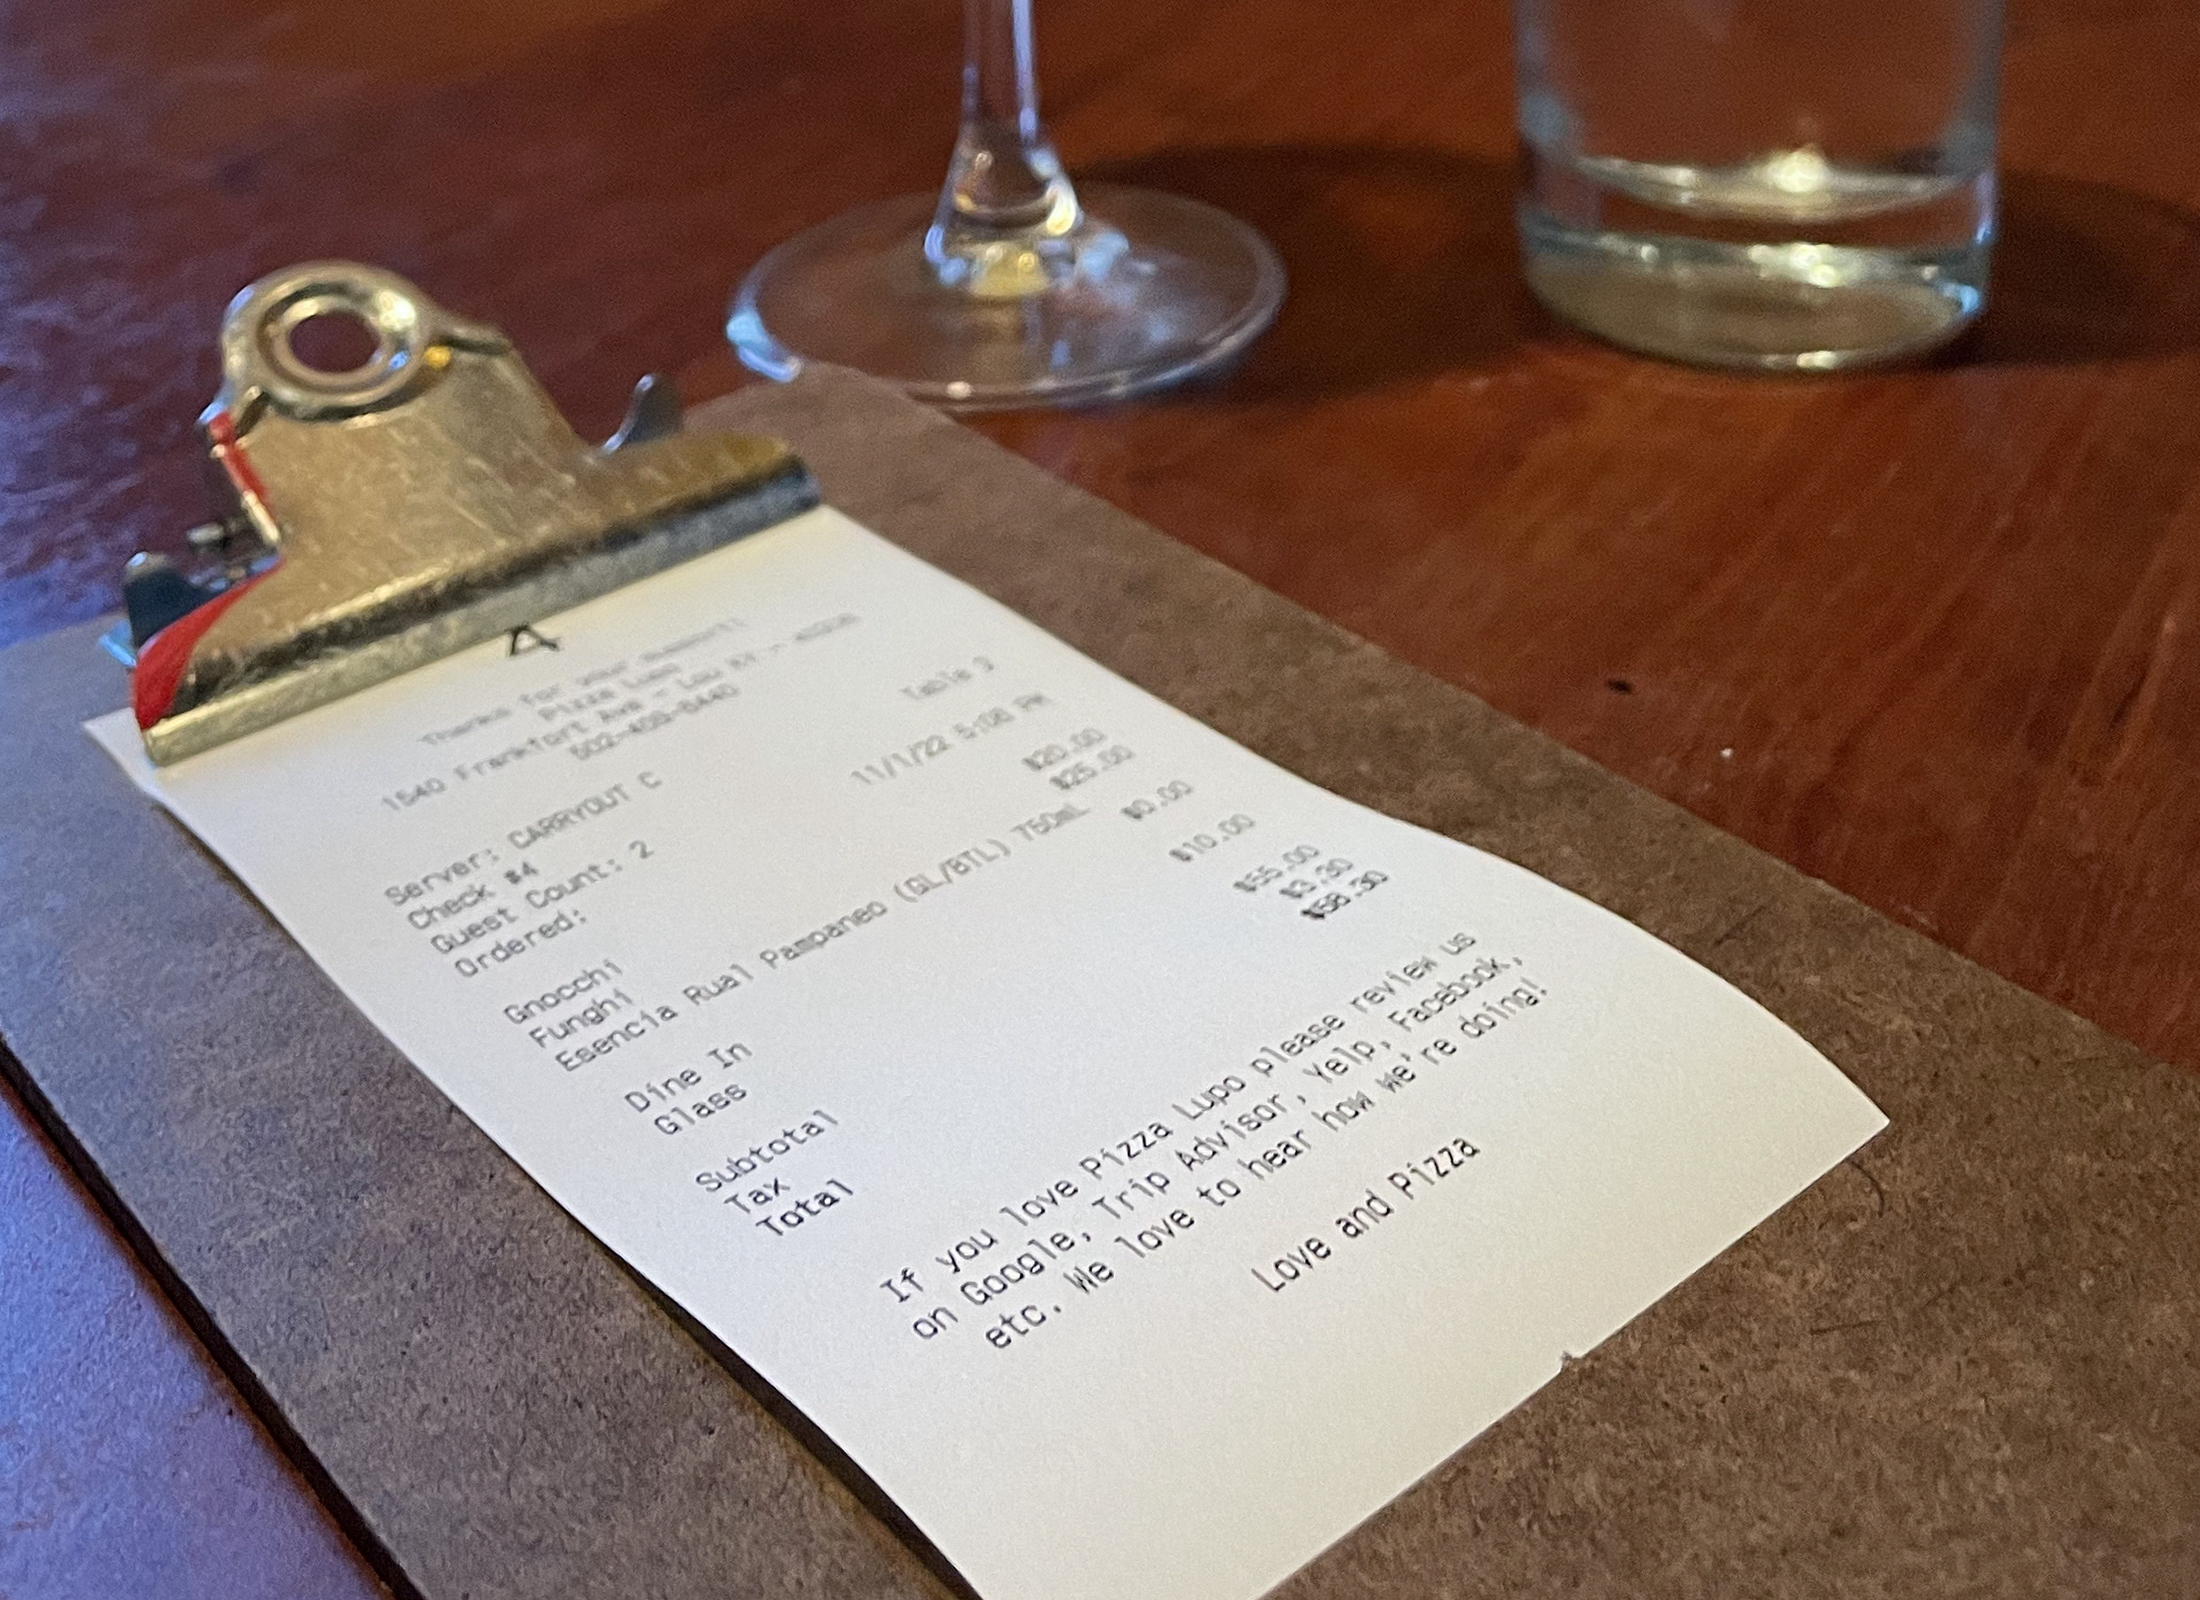 Thanks for your support!
Pizza Lupo
1540 Frankfort Ave - Lou KY - 40206
502-409-8440
Server: CARRYOUT C
Check #4 Table 9
Guest Count: 2
Ordered: 11/1/22 5:08 PM
Gnocchi $20.00
Funghi $25.00
Esencia Rual Pampaneo (GL/BTL) 750mL $0.00
Dine In
Glass $10.00
Subtotal $55.00
Tax $3.30
Total $58.30
If you love Pizza Lupo please review us
on Google, Trip Advisor, Yelp, Facebook,
etc. We love to hear how we're doing!
Love and Pizza